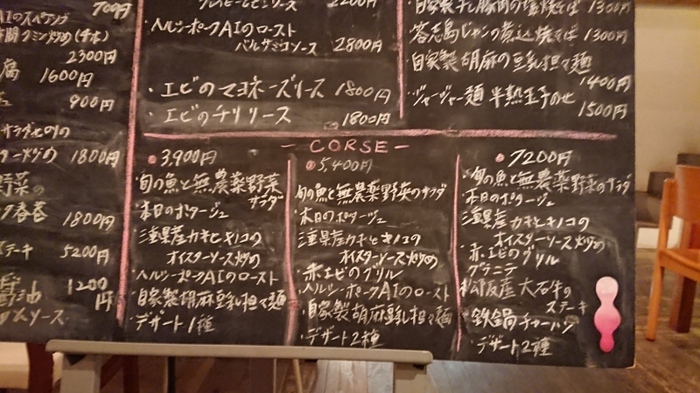 700円
AIのスペアリブ
2300円
腐 1600円
900円
サラダ仕切り
1800円
野菜の
春巻 1800円
ステーキ 5200円
1200円
醤油
ソース
2200円
ヘルシーポークAIのロースト
バルサミコソース 2800円
・エビのマヨネーズソース 1800円
・エビのチリソース 1800円
1300円
答志島ジャンの煮込焼そば 1300円
自家製胡麻の豆乳担々麺
1400円
ジャージャー麺 半熟玉子のせ
1500円
- CORSE -
3,900円
・旬の魚と無農薬野菜
サラダ
・本日のポタージュ
三重県産カキとキノコの
オイスターソース炒め
・ヘルシーポークAIのロースト
・自家製胡麻豆乳担々麺
・デザート1種
5,400円
旬の魚と無農薬野菜のサラダ
・本日のポタージュ
三重県産カキとキノコの
オイスターソース炒め
・赤エビのグリル
ヘルシーポークAIのロースト
・自家製胡麻豆乳担々麺
・デザート2種
7200円
・旬の魚と無農薬野菜のサラダ
・本日のポタージュ
三重県産カキとキノコの
オイスターソース炒め
・赤エビのグリル
グラニテ
松阪産大石牛の
ステーキ
・鉄鍋チャーハン
・デザート2種